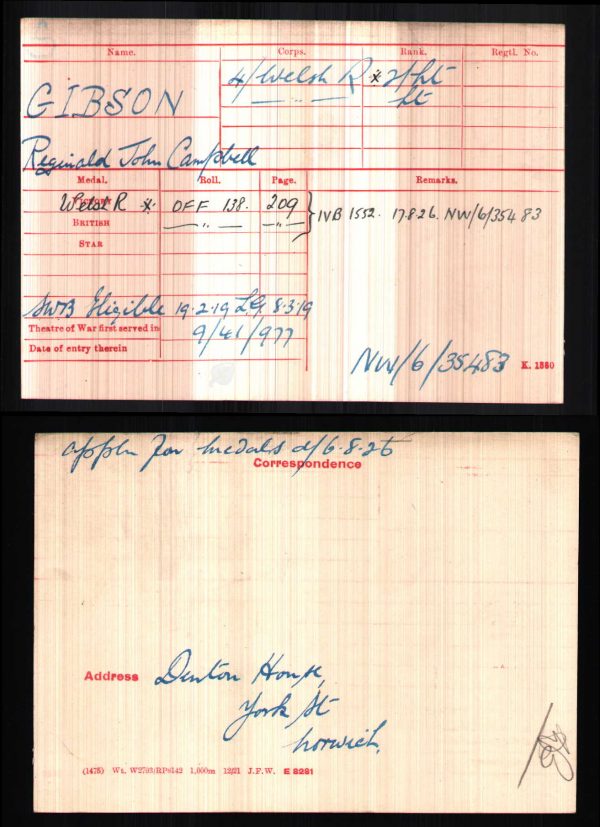 Name. Corps. Rank. Regtl. No.
GIBSON 4/Welsh R * 2/Lt
— " — Lt
Reginald John Campbell
Medal. Roll. Page. Remarks.
VICTORY Welsh R * OFF 138. 209 } IVB 1552. 17.8.26. NW/6/35483
BRITISH — " — — " —
STAR
SWB Eligible 19.2.19 L.G. 8.3.19
Theatre of War first served in 9/41/977
Date of entry therein
NW/6/35483 K. 1380
appln for medals d/6.8.26
Correspondence
Address Denton House,
York St
Norwich.
(1475) Wt. W2703/RP8142 1,000m 12/21 J.F.W. E 8281